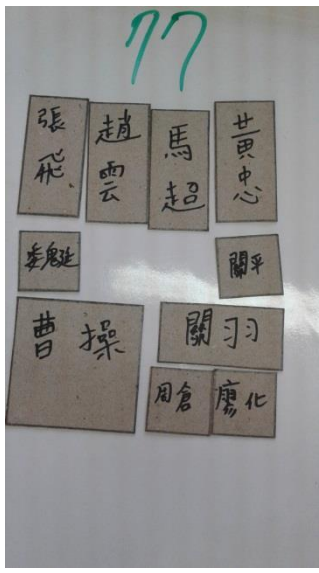 77
張飛
趙雲
馬超
黃忠
魏延
關平
曹操
關羽
周倉
廖化